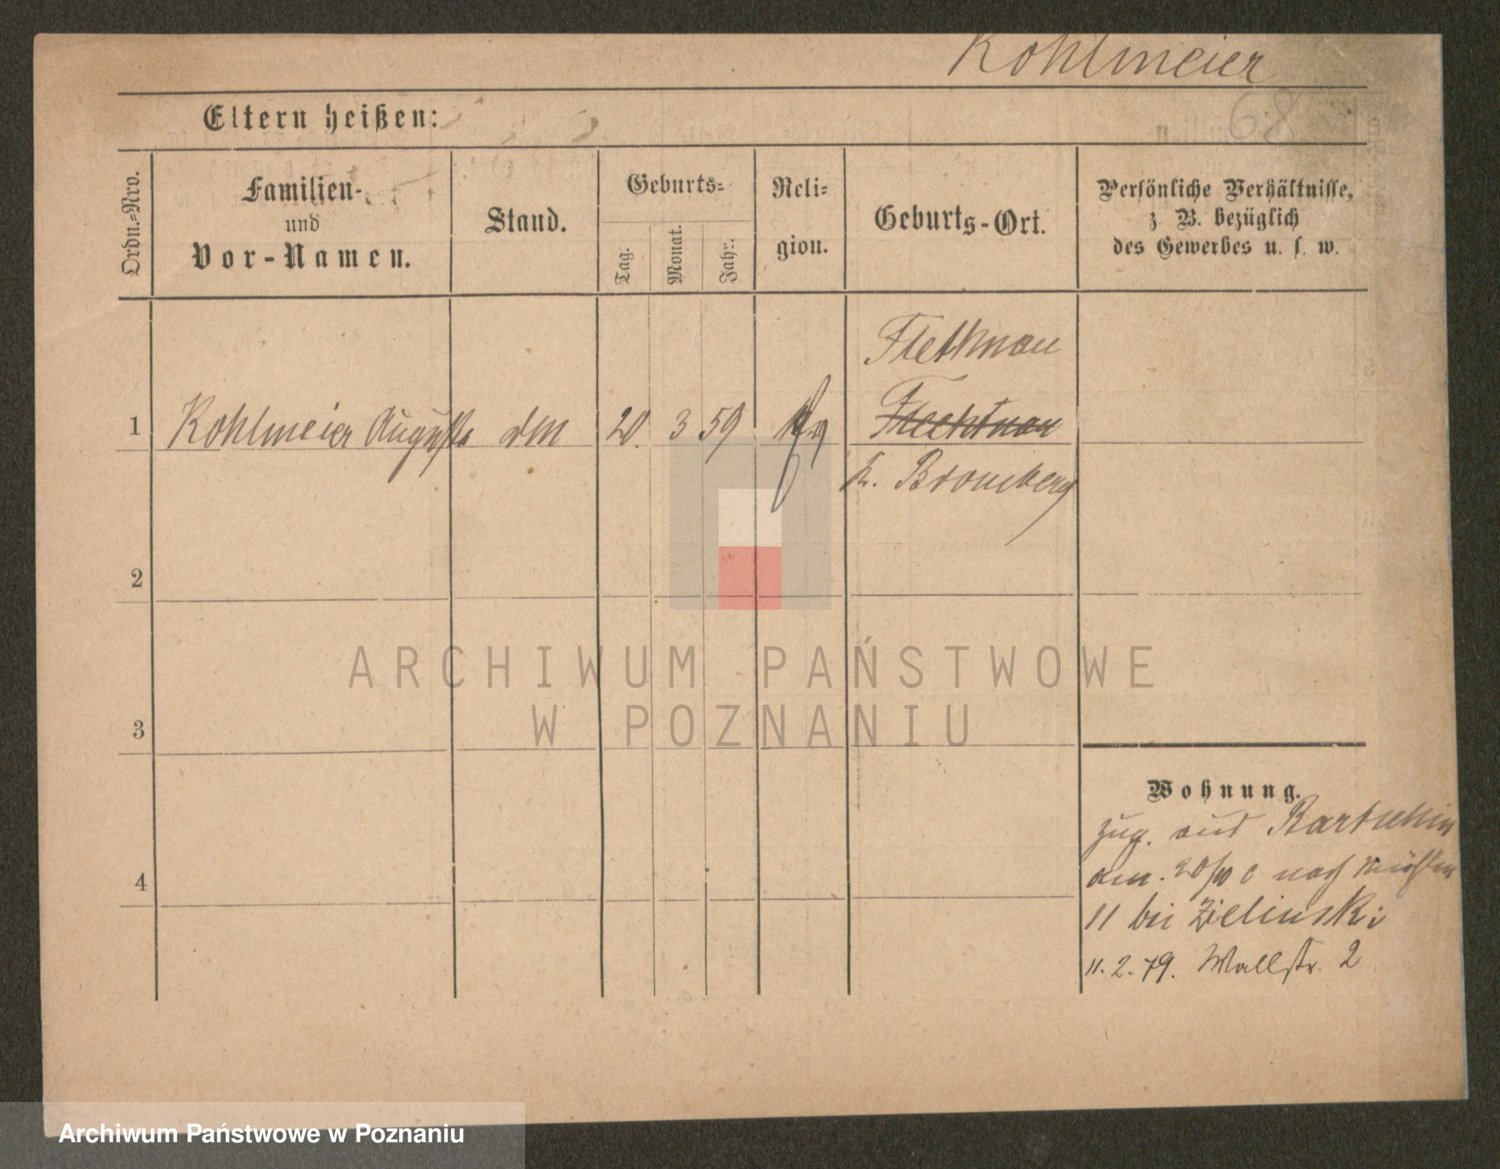 Kohlmeier
68
Eltern heißen:
Ordn.-Nro.
Familien-
und
Vor-Namen.
Stand.
Geburts-
Tag.
Monat.
Jahr.
Reli-
gion.
Geburts-Ort.
Persönliche Verhältnisse,
z. B. bezüglich
des Gewerbes u. s. w.
Flethnau
1 Kohlmeier Auguste dM 20. 3 59
K. Bromberg
2
3
4
Wohnung.
zug. aus Bartschin
am 20/10 c nach
11 bei Zielinski
11.2.79. Wallstr. 2
ARCHIWUM PAŃSTWOWE
W POZNANIU
Archiwum Państwowe w Poznaniu